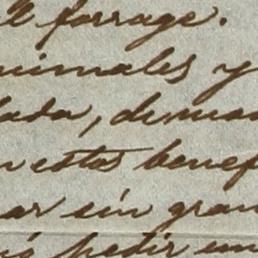 el forrage.
nimales y
lada, deman
n estos benef
ar sin gran
pedir un